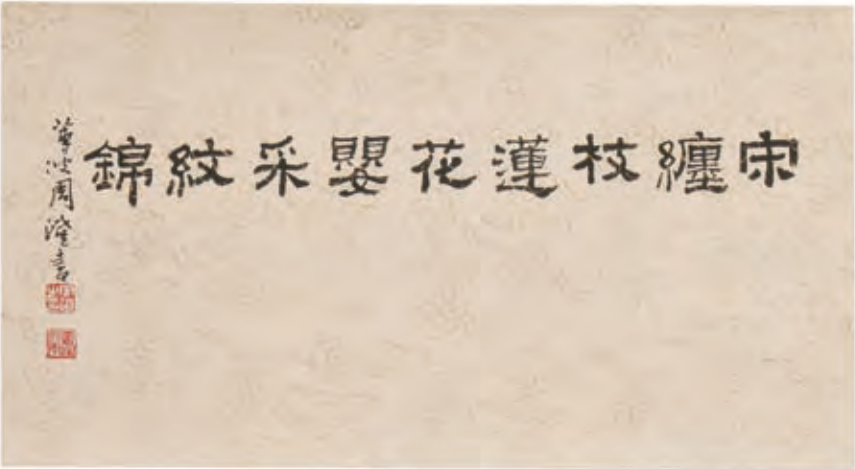 宋纏枝蓮花嬰采紋錦
蓴波周澄書